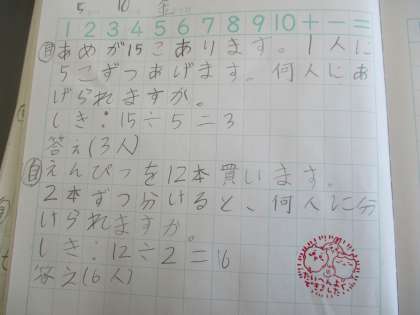 5 10 金
1 2 3 4 5 6 7 8 9 10 + - =
問 あめが15こあります。1人に
5こずつあげます。何人にあ
げられますか。
しき:15÷5=3
答え(3人)
自 えんぴつを12本買います。
2本ずつ分けると、何人に分
けられますか。
しき:12÷2=6
答え(6人)